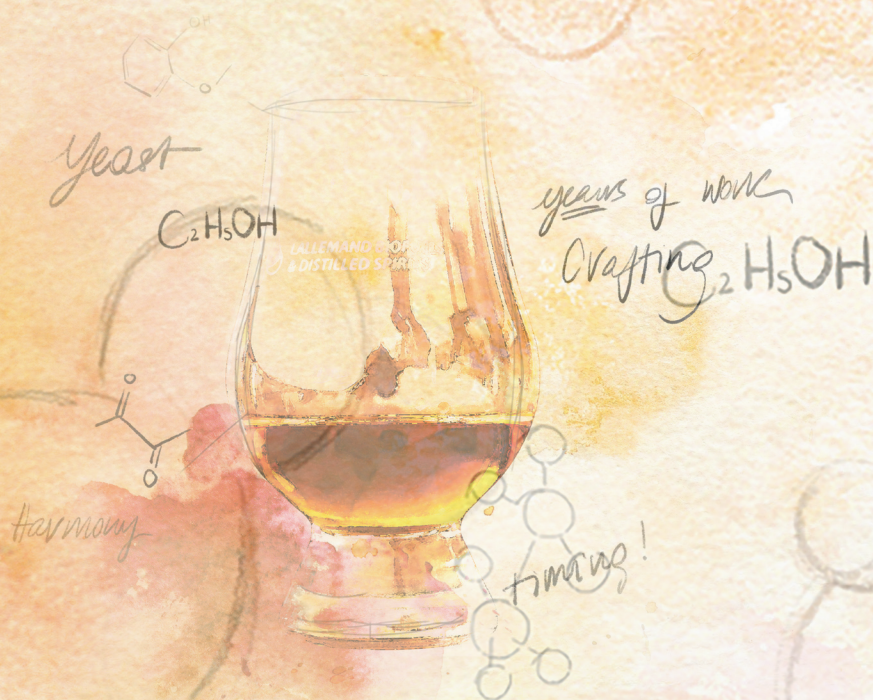 OH
O
Yeast
C₂H₅OH
LALLEMAND
& DISTILLED
years of work
Crafting
C₂H₅OH
O
O
Harmony
timing!